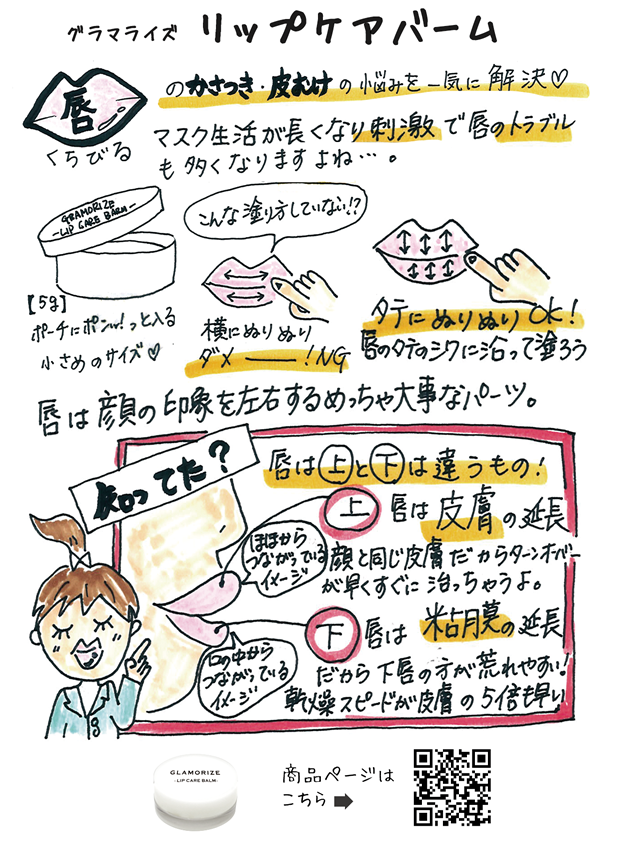 グラマライズ リップケアバーム
唇
くちびる
のかさつき・皮むけの悩みを一気に解決♡
マスク生活が長くなり刺激で唇のトラブル
も多くなりますよね…。
GRAMORIZE
-LIP CARE BALM-
【5g】
ポーチにポンッ!っと入る
小さめのサイズ♡
こんな塗り方していない!?
横にぬりぬり
ダメ――!NG
タテにぬりぬりOK!
唇のタテのシワに沿って塗ろう
唇は顔の印象を左右するめっちゃ大事なパーツ。
知ってた?
唇は上と下は違うもの!
上 唇は皮膚の延長
顔と同じ皮膚だからターンオーバー
が早くすぐに治っちゃうよ。
ほほから
つながっている
イメージ
下 唇は粘膜の延長
だから下唇の方が荒れやすい!
乾燥スピードが皮膚の5倍も早い
口の中から
つながっている
イメージ
GLAMORIZE
-LIP CARE BALM-
商品ページは
こちら➡